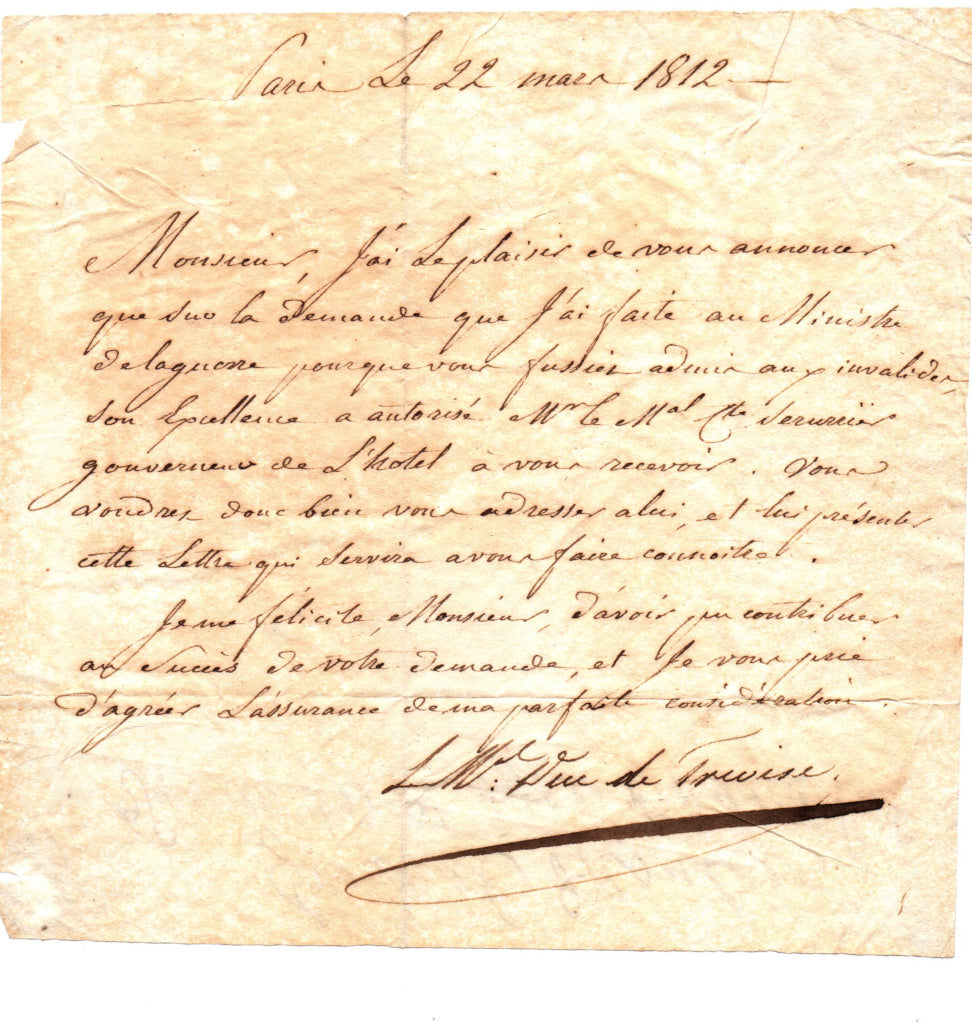 Paris Le 22 mars 1812 —
Monsieur, J'ai Le plaisir de vous annoncer
que sur la Demande que J'ai faite au Ministre
delaguerre pourque vous fussiez admis aux invalides,
Son Excellence a autorisé Mr le Mal Cte Serurrier
gouverneur de L'hotel à vous recevoir. Vous
voudrez donc bien vous adresser alui, et lui présenter
cette Lettre qui Servira avous faire connoitre.
Je me félicite, Monsieur, d'avoir pu contribuer
au Succès de votre demande, et Je vous prie
d'agréer L'assurance de ma parfaite considération.
Le Mal. Duc de Trevise.